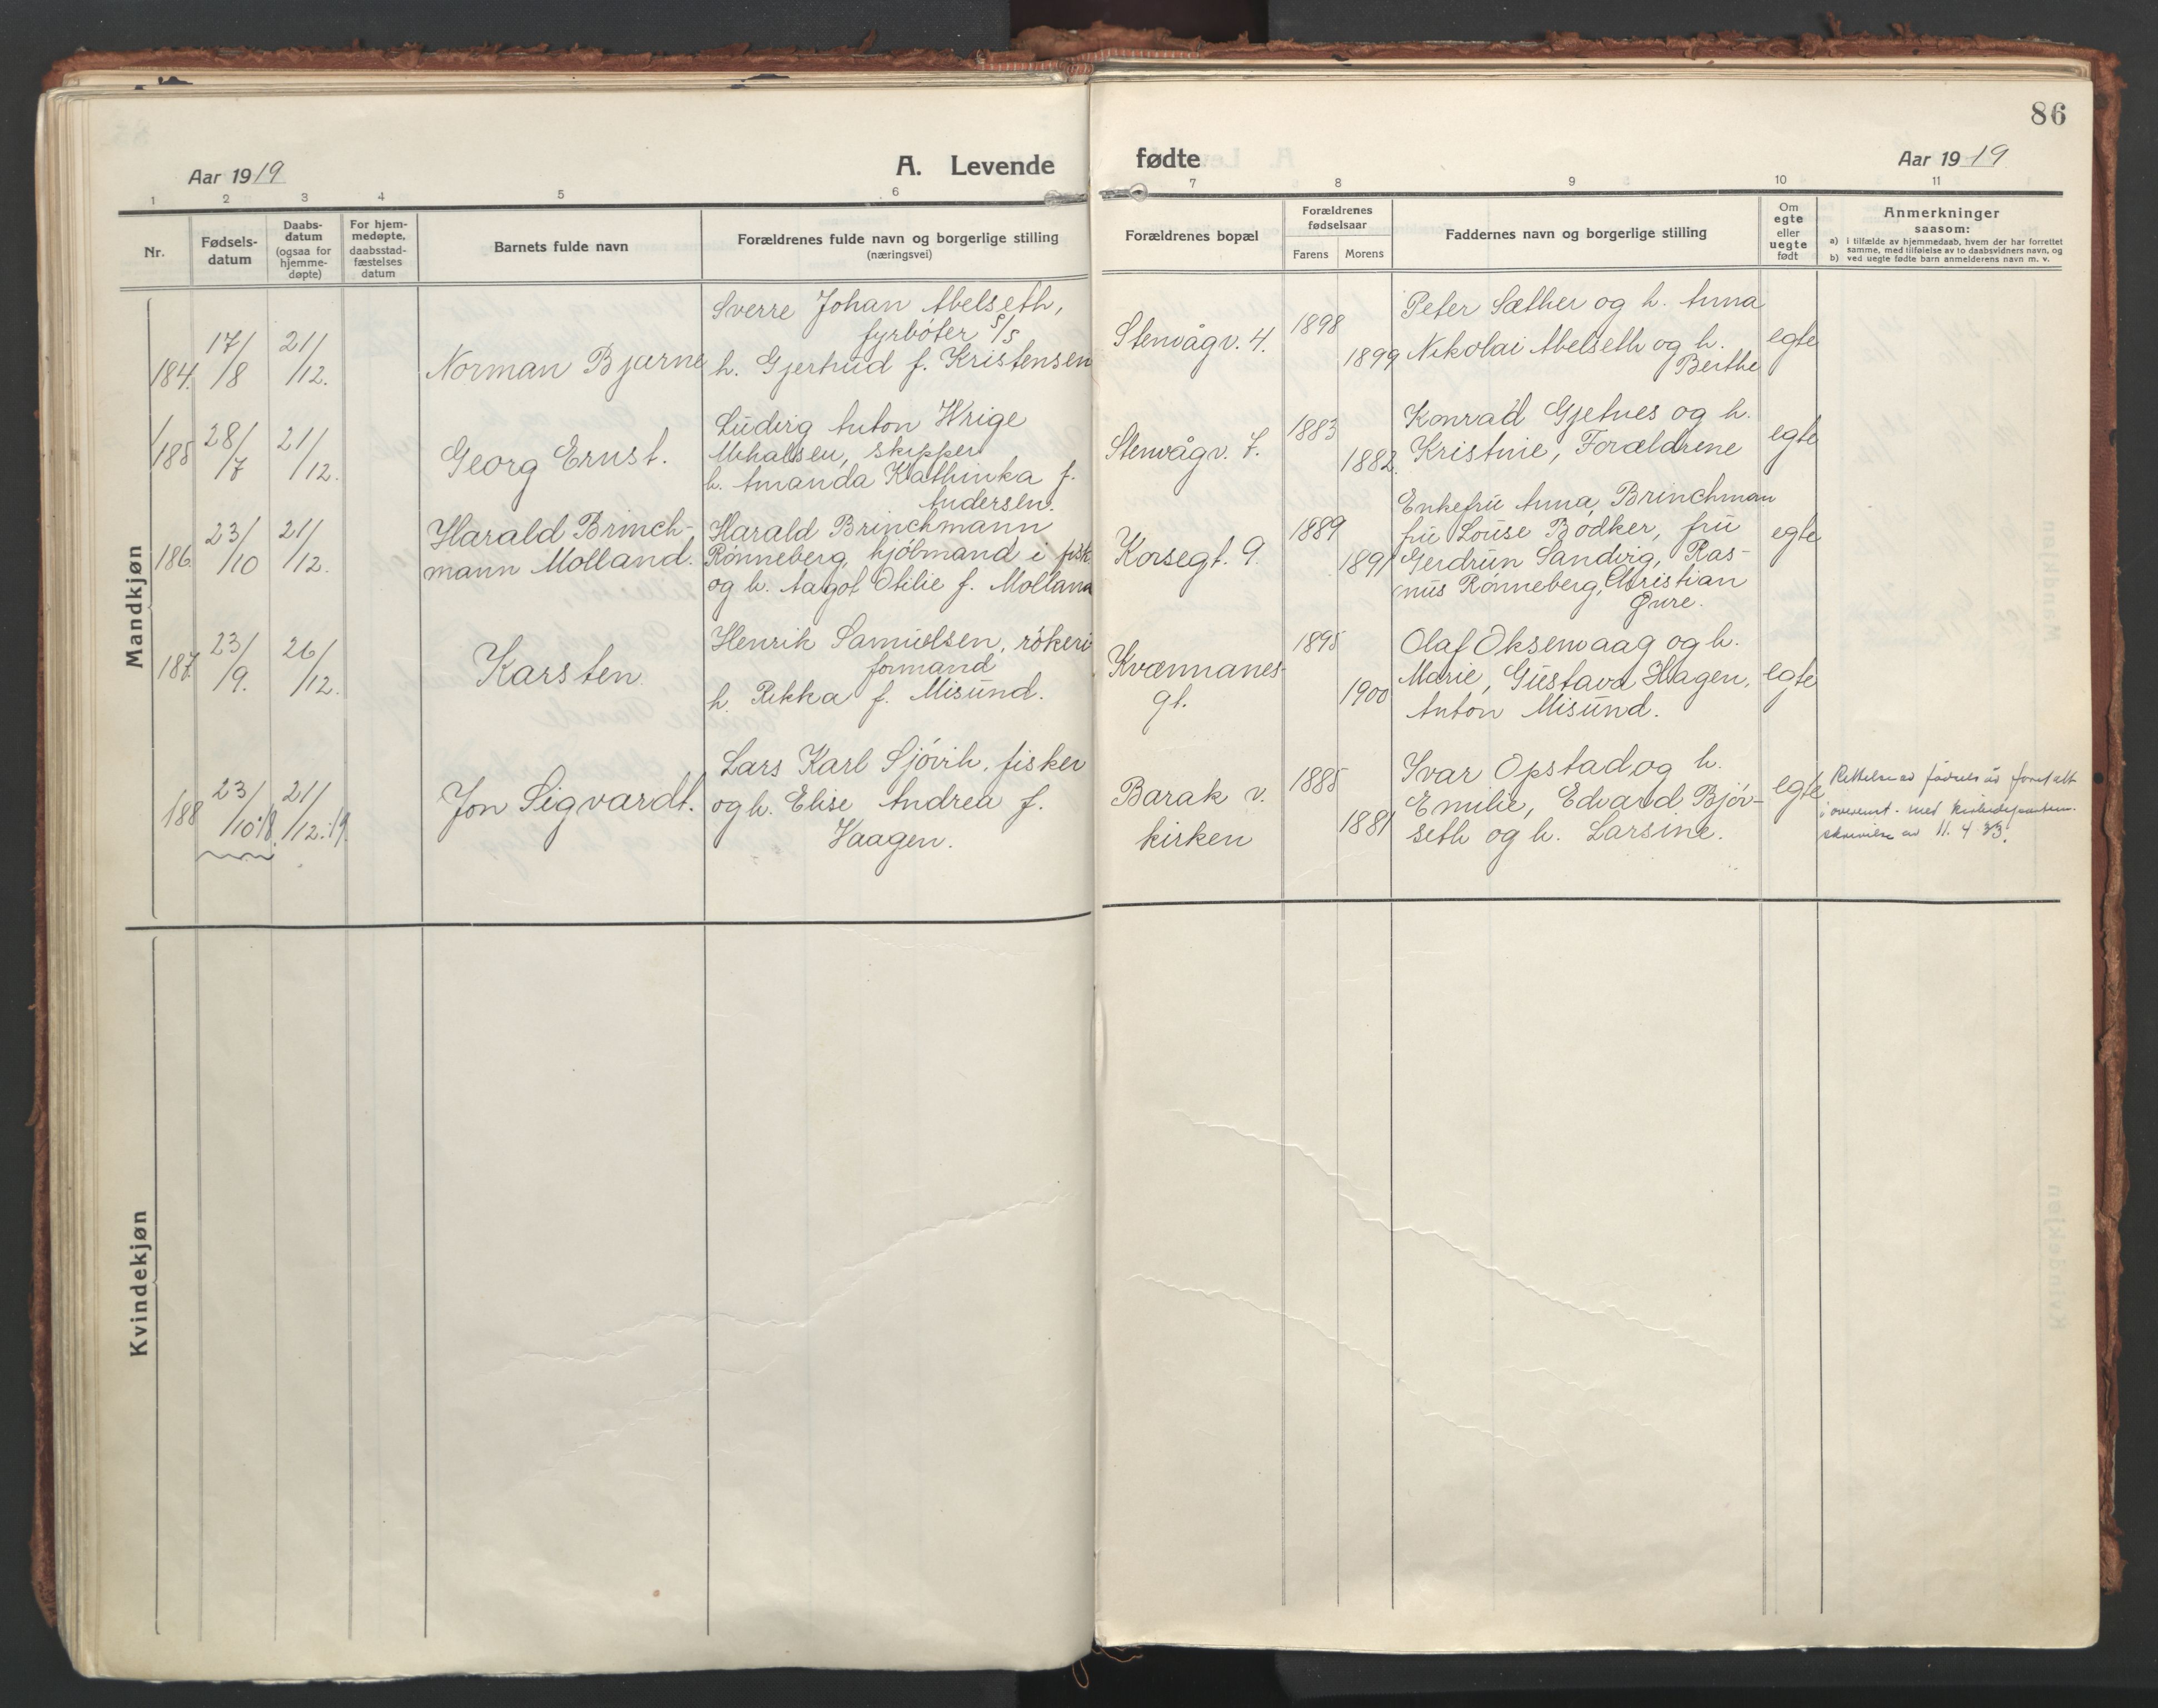 86
Aar 1919
A. Levende fødte
Aar 1919
1 2 3 4 5 6 7 8 9 10 11
Nr.
Fødsels-
datum
Daabs-
datum
(ogsaa for
hjemme-
døpte)
For hjem-
medøpte,
daabsstad-
fæstelses
datum
Barnets fulde navn
Forældrenes fulde navn og borgerlige stilling
(næringsvei)
Forældrenes bopæl
Forældrenes
fødselsaar
Farens Morens
Faddernes navn og borgerlige stilling
Om
egte
eller
uegte
født
Anmerkninger
saasom:
a) i tilfælde av hjemmedaab, hvem der har forrettet
samme, med tilføielse av to daabsvidners navn, og
b) ved uegte fødte barn anmelderens navn m. v.
Mandkjøn
184. 17/8 21/12.
Norman Bjarne
Sverre Johan Abelseth,
fyrböter S/S
h. Gjertrud f. Kristensen
Stenvågv. 4.
1898
1899
Peter Sæther og h. Anna
Nikolai Abelseth og h.
Berthe
egte
185 28/7 21/12.
Georg Ernst.
Ludvig Anton Wrige
Mikalsen, skipper
h. Amanda Kathinka f.
Andersen.
Stenvågv. 7.
1883
1882.
Konrad Gjetnes og h.
Kristine, Forældrene
egte
186 23/10 21/12.
Harald Brinch-
mann Molland.
Harald Brinchmann
Rönneberg, kjöbmand i fisk
og h. Aagot Otilie f. Molland
Korsegt. 9.
1889
1891
Enkefru Anna Brinchmann
fru Louse Bödker, fru
Gerdrun Sandvig, Ras-
mus Rönneberg, Christian
Øure.
egte
187. 23/9. 26/12.
Karsten
Henrik Samuelsen, rökeri
formand
h. Rikka f. Misund.
Kvænnanes-
gt.
1895
1900
Olaf Oksenvaag og h.
Marie, Gustava Hagen,
Anton Misund.
egte
188 23/10.18. 21/12.19.
Jon Sigvardt.
Lars Karl Sjövik, fisker
og h. Elise Andrea f.
Vaagen.
Barak v.
kirken
1885
1881
Ivar Opstad og h.
Emilie, Edvard Björ-
seth og h. Larsine.
egte
Rettelse av födselsår foretatt
i overenst. med kirkedepartem.
skrivelse av 11. 4 33.
Kvindekjøn